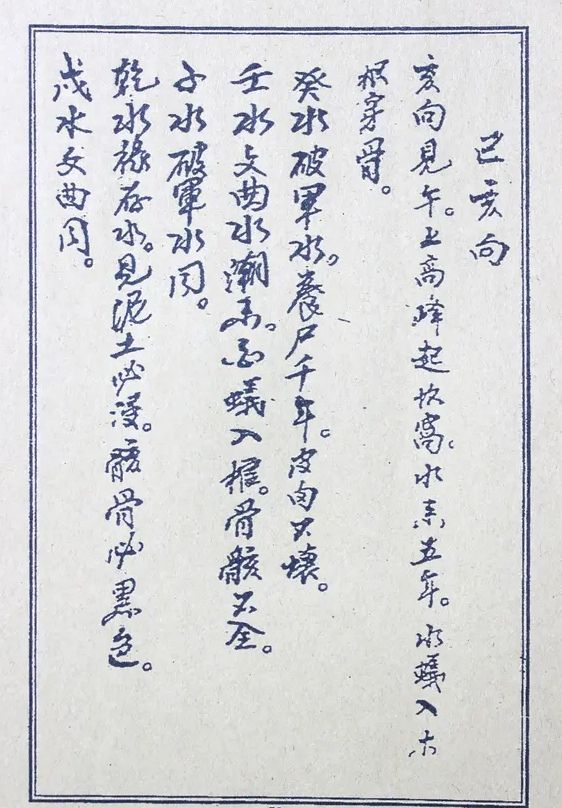 已亥向
亥向見午。上高峰起坎窩。水來五年。水蟻入木
根穿骨。
癸水破軍水。養尸千年。皮肉不壞。
壬水文曲水潮來。白蟻入棺。骨骸不全。
子水破軍水同。
乾水祿存水。見泥土必浸。骸骨必黑色。
戌水文曲同。